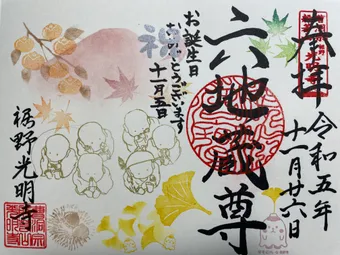 奉拝
令和五年
十一月廿六日
六地蔵尊
お誕生日
おめでとうございます
十一月五日
裾野光明寺